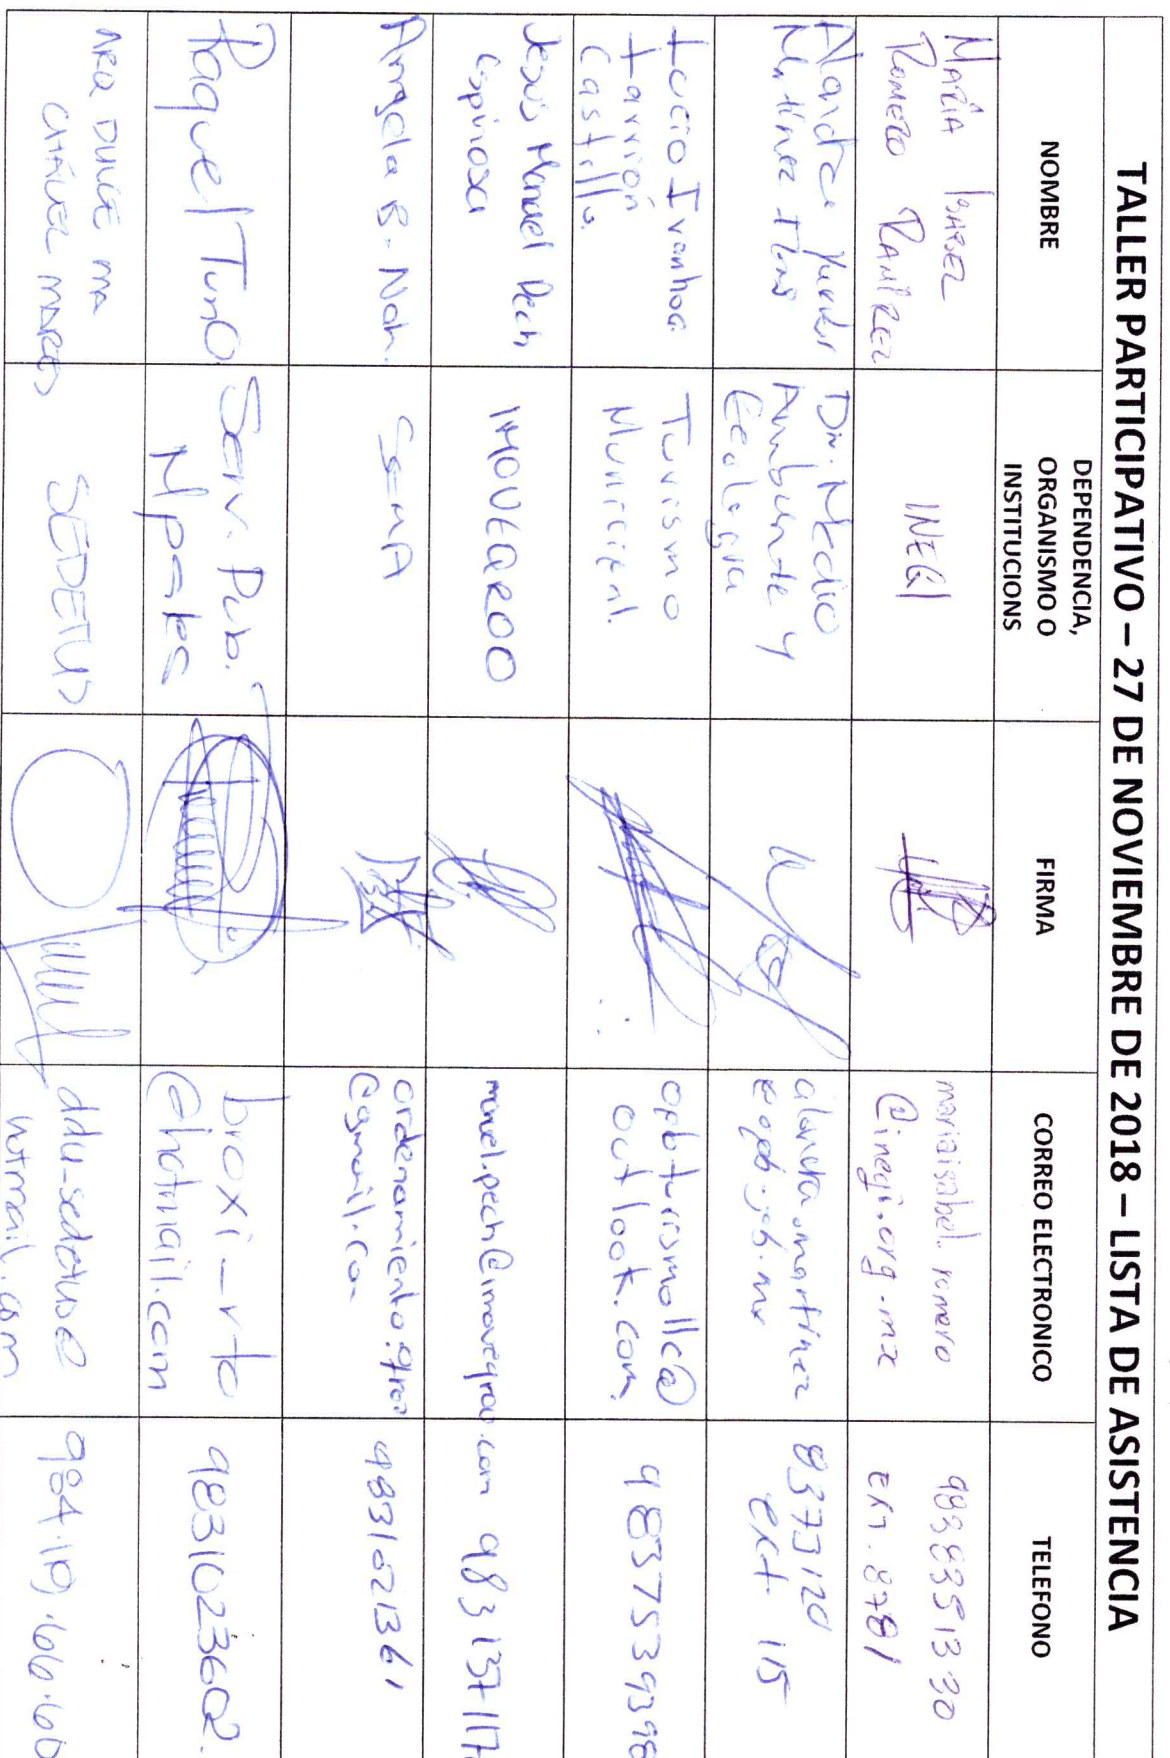 TALLER PARTICIPATIVO – 27 DE NOVIEMBRE DE 2018 – LISTA DE ASISTENCIA
NOMBRE
DEPENDENCIA,
ORGANISMO O
INSTITUCIONS
FIRMA
CORREO ELECTRONICO
TELEFONO
MARÍA ISABEL
ROMERO RAMÍREZ
INEGI
mariaisabel.romero
@inegi.org.mx
9838351330
EXT. 8781
Martínez
Dir. Medio
Ambiente y
Ecología
8373120
ext 115
Lucio Ivanhoe
Carrión
Castillo.
Turismo
Municipal.
outlook.com.
Jesus Manuel Pech
Espinosa
INOVEQROO
983 137 117
Angela B. Noh.
SEMA
ordenamiento.qroo
@gmail.com
9831021361
Raquel Tun O
Serv. Pub.
Mpales
broxi_rto
@hotmail.com
9831023602.
ARQ DULCE MA
CHÁVEZ MARCOS
SEDETUS
ddu_sedetus@
hotmail.com